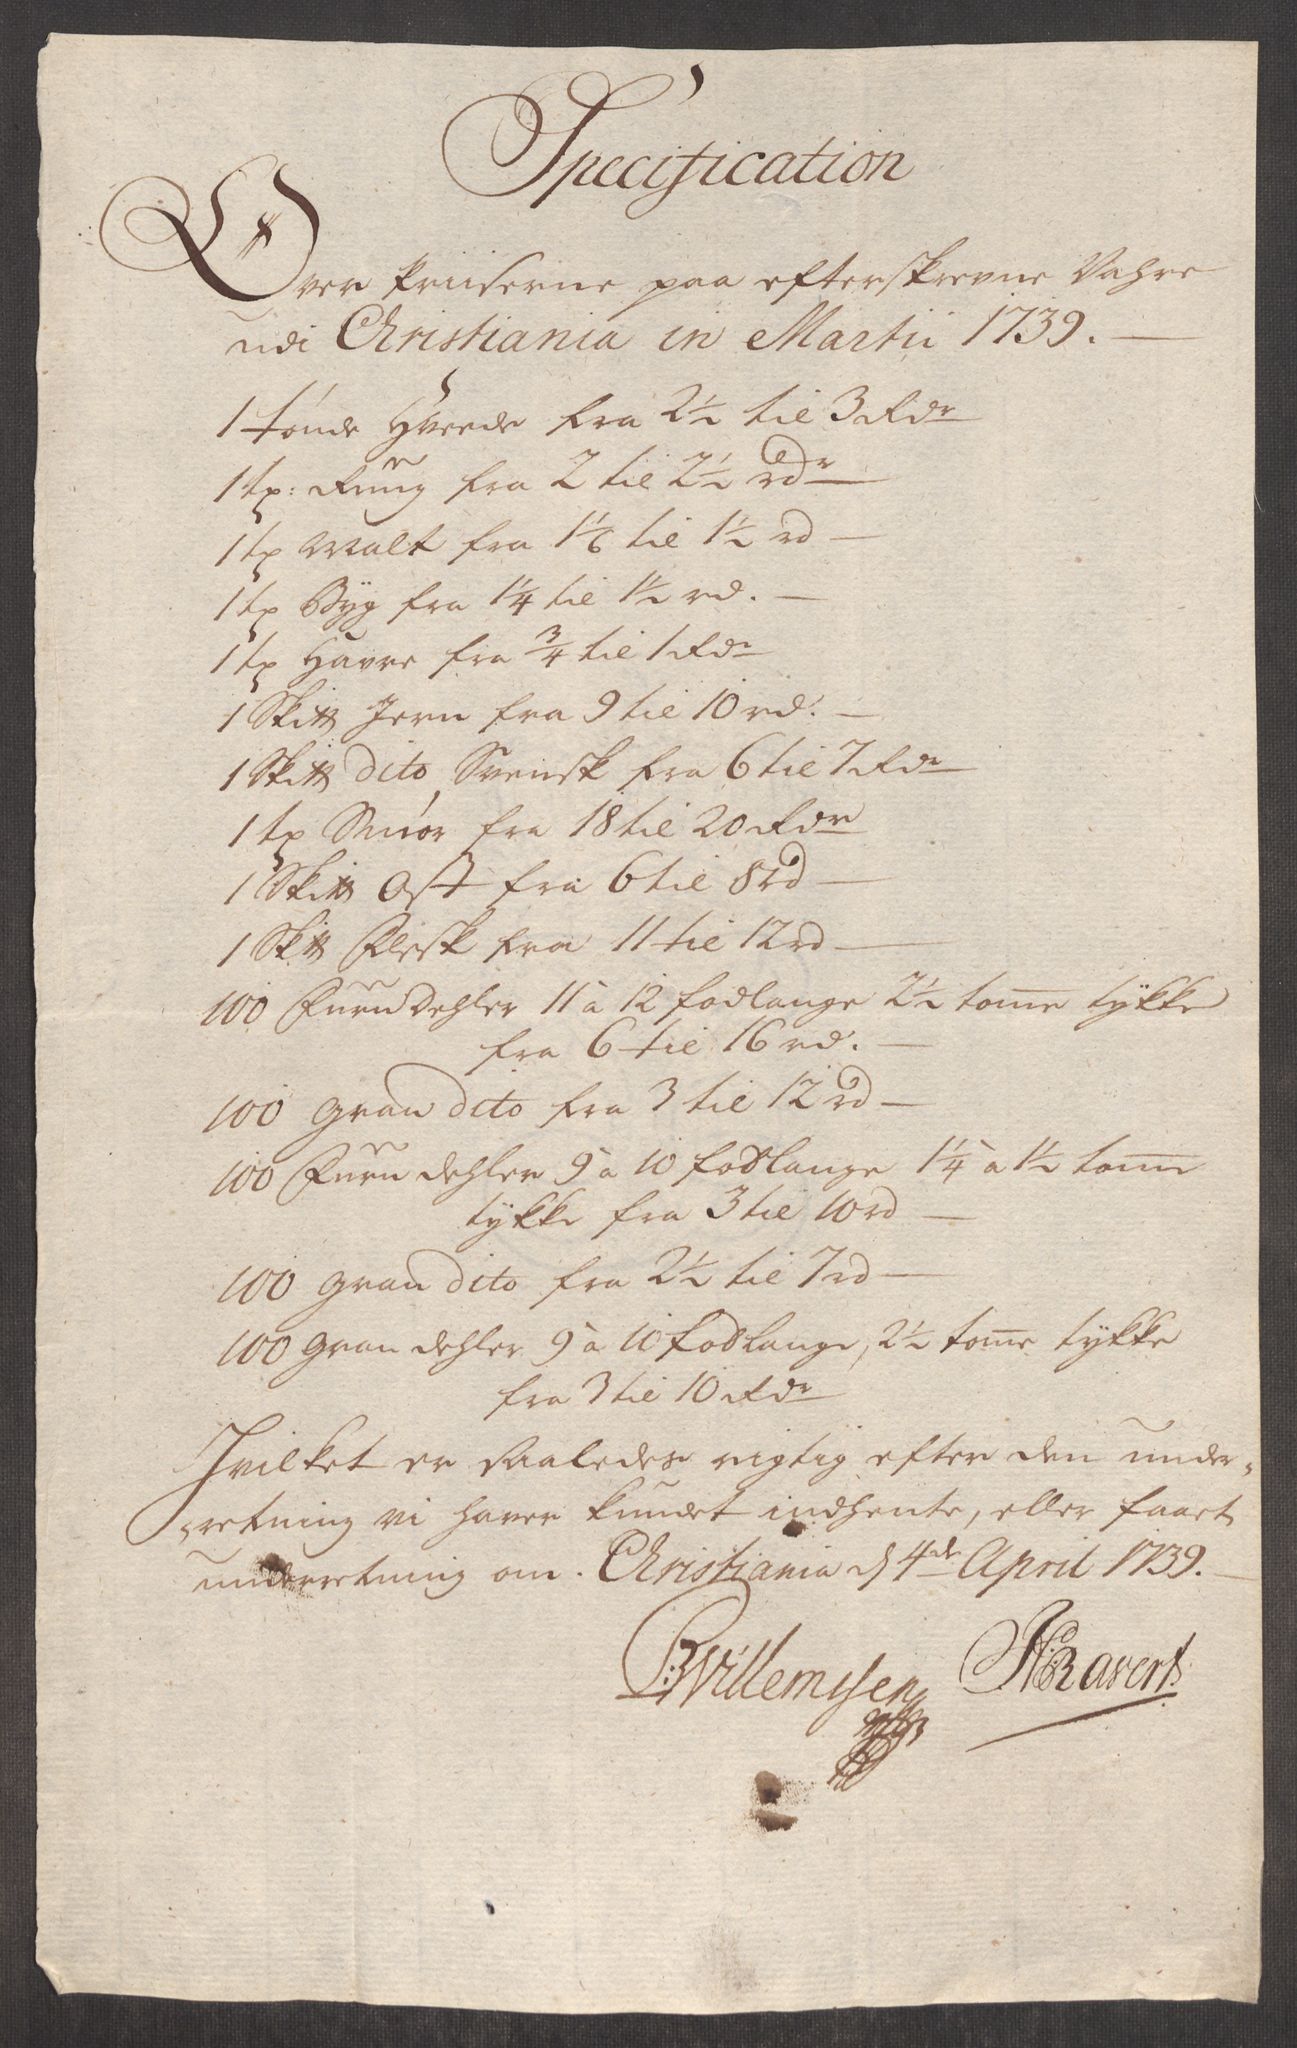 Specification
Over Priiserne paa efterskrevne Vahre
udi Christiania in Martii 1739.
1 tønde Hveede fra 2½ til 3 Rdr
1 tp: Rug fra 2 til 2½ rdr
1 tp Malt fra 1⅙ til 1½ rd
1 tp Byg fra 1¼ til 1½ rd.
1 tp Havre fra ¾ til 1 Rdr
1 Skil℔ Jern fra 9 til 10 rd.
1 Skil℔ dito Svensk fra 6 til 7 Rdr
1 tp Smør fra 18 til 20 Rdr
1 Skil℔ Ost fra 6 til 8 rd
1 Sk℔ Flesk fra 11 til 12 rd
100 Furu Dehler 11 à 12 fodlange 2½ tome tykke
fra 6 til 16 rd.
100 gran dito fra 3 til 12 rd
100 Furu dehler 9 à 10 fodlange 1¼ à 1½ tome
tykke fra 3 til 10 rd
100 gran dito fra 2½ til 7 rd
100 gran dehler 9 à 10 fodlange, 2½ tome tykke
fra 3 til 10 Rdr
Hvilket er saaledes rigtig efter den under-
retning vi haver kundet indhente, eller faaet
underretning om. Christiania d 4de April 1739.
BWillemssen HRavert